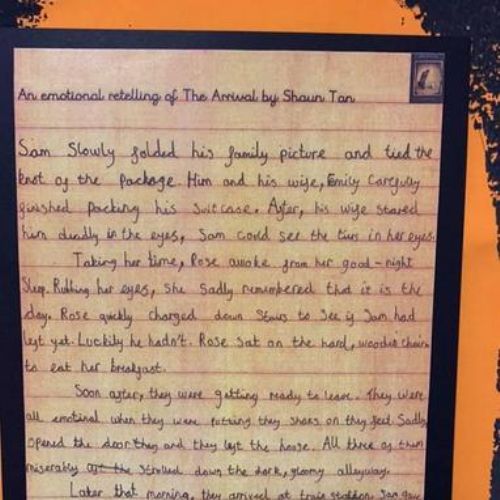 An emotional retelling of The Arrival by Shaun Tan
Sam Slowly folded his family picture and tied the
knot of the package. Him and his wife, Emily Carefully
finished packing his suitcase. After, his wife stared
him deadly in the eyes, Sam could see the tiers in her eyes.
Taking her time, Rose awoke from her good-night
Sleep. Rubbing her eyes, she sadly remembered that it is the
day. Rose quickly charged down stairs to see if Sam had
left yet. Luckily he hadn't. Rose sat on the hard, wooden chair
to eat her breakfast.
Soon after, they were getting ready to leave. They were
all emotinal when they were putting they shoes on they feet. Sadly,
opened the door they and they left the house. All three of them
miserably strolled down the dark, gloomy alleyway.
Later that morning, they arrived at train station. Sam gave